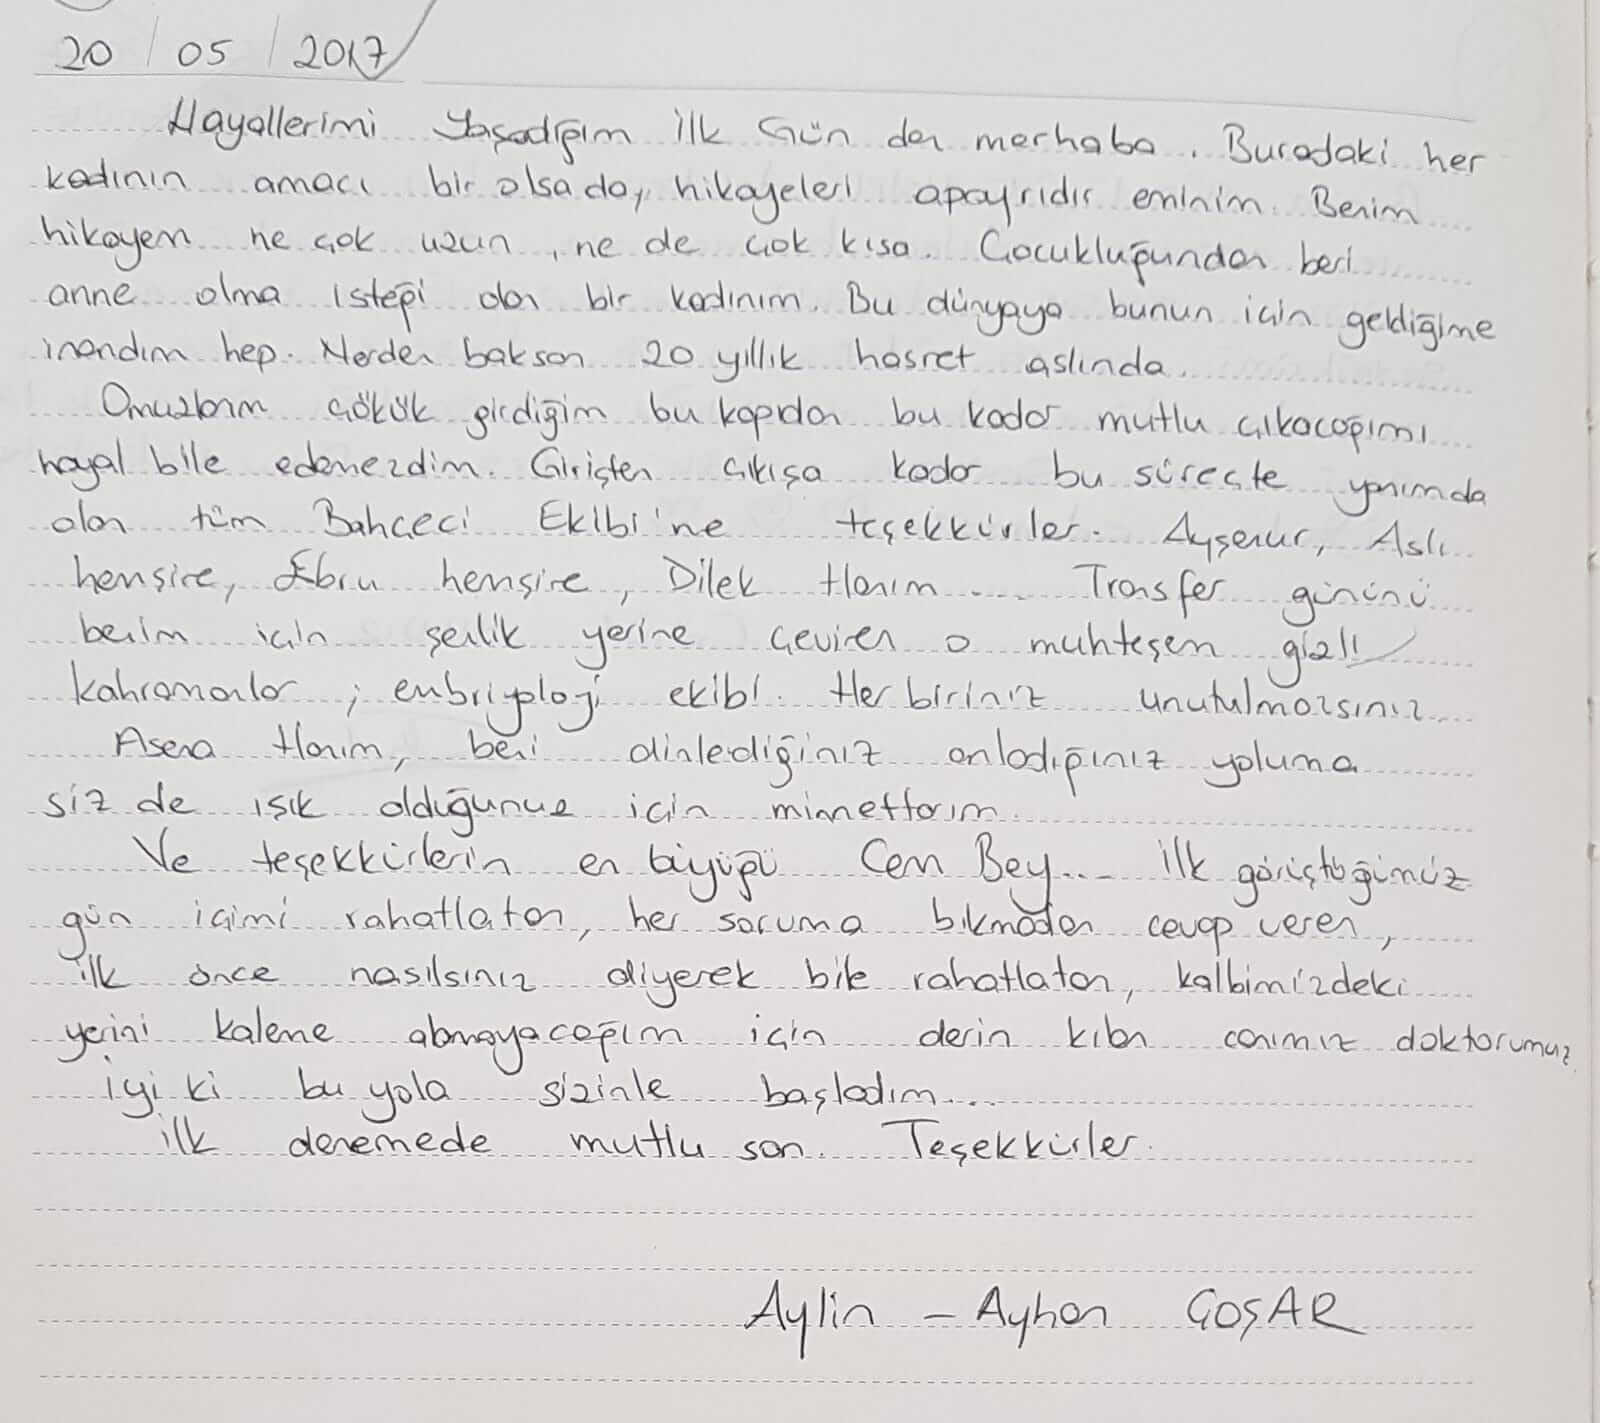 20 / 05 / 2017
Hayallerimi Yaşadığım ilk Gün den merhaba. Buradaki her
kadının amacı bir olsa da, hikayeleri apayrıdır eminim. Benim
hikayem ne çok uzun, ne de çok kısa. Çocukluğundan beri
anne olma isteği olan bir kadınım. Bu dünyaya bunun için geldiğime
inandım hep. Nerden baksan 20 yıllık hasret aslında.
Omuzlarım çökük girdiğim bu kapıdan bu kadar mutlu çıkacağımı
hayal bile edemezdim. Girişten çıkışa kadar bu süreçte yanımda
olan tüm Bahçeci Ekibi'ne teşekkürler. Ayşenur, Aslı
hemşire, Ebru hemşire, Dilek Hanım .... Transfer gününü
benim için şenlik yerine çeviren o muhteşem gizli
kahramanlar ; embriyoloji ekibi. Her biriniz unutulmazsınız.
Asena Hanım, beni dinlediğiniz anladığınız yoluma
siz de ışık olduğunuz için minnettarım.
Ve teşekkürlerin en büyüğü Cem Bey... İlk görüştüğümüz
gün içimi rahatlatan, her soruma bıkmadan cevap veren,
ilk önce nasılsınız diyerek bile rahatlatan, kalbimizdeki
yerini kaleme alamayacağım için derin kılan canımız doktorumuz
iyi ki bu yola sizinle başladım...
ilk denemede mutlu son. Teşekkürler.
Aylin - Ayhan ÇOŞAR